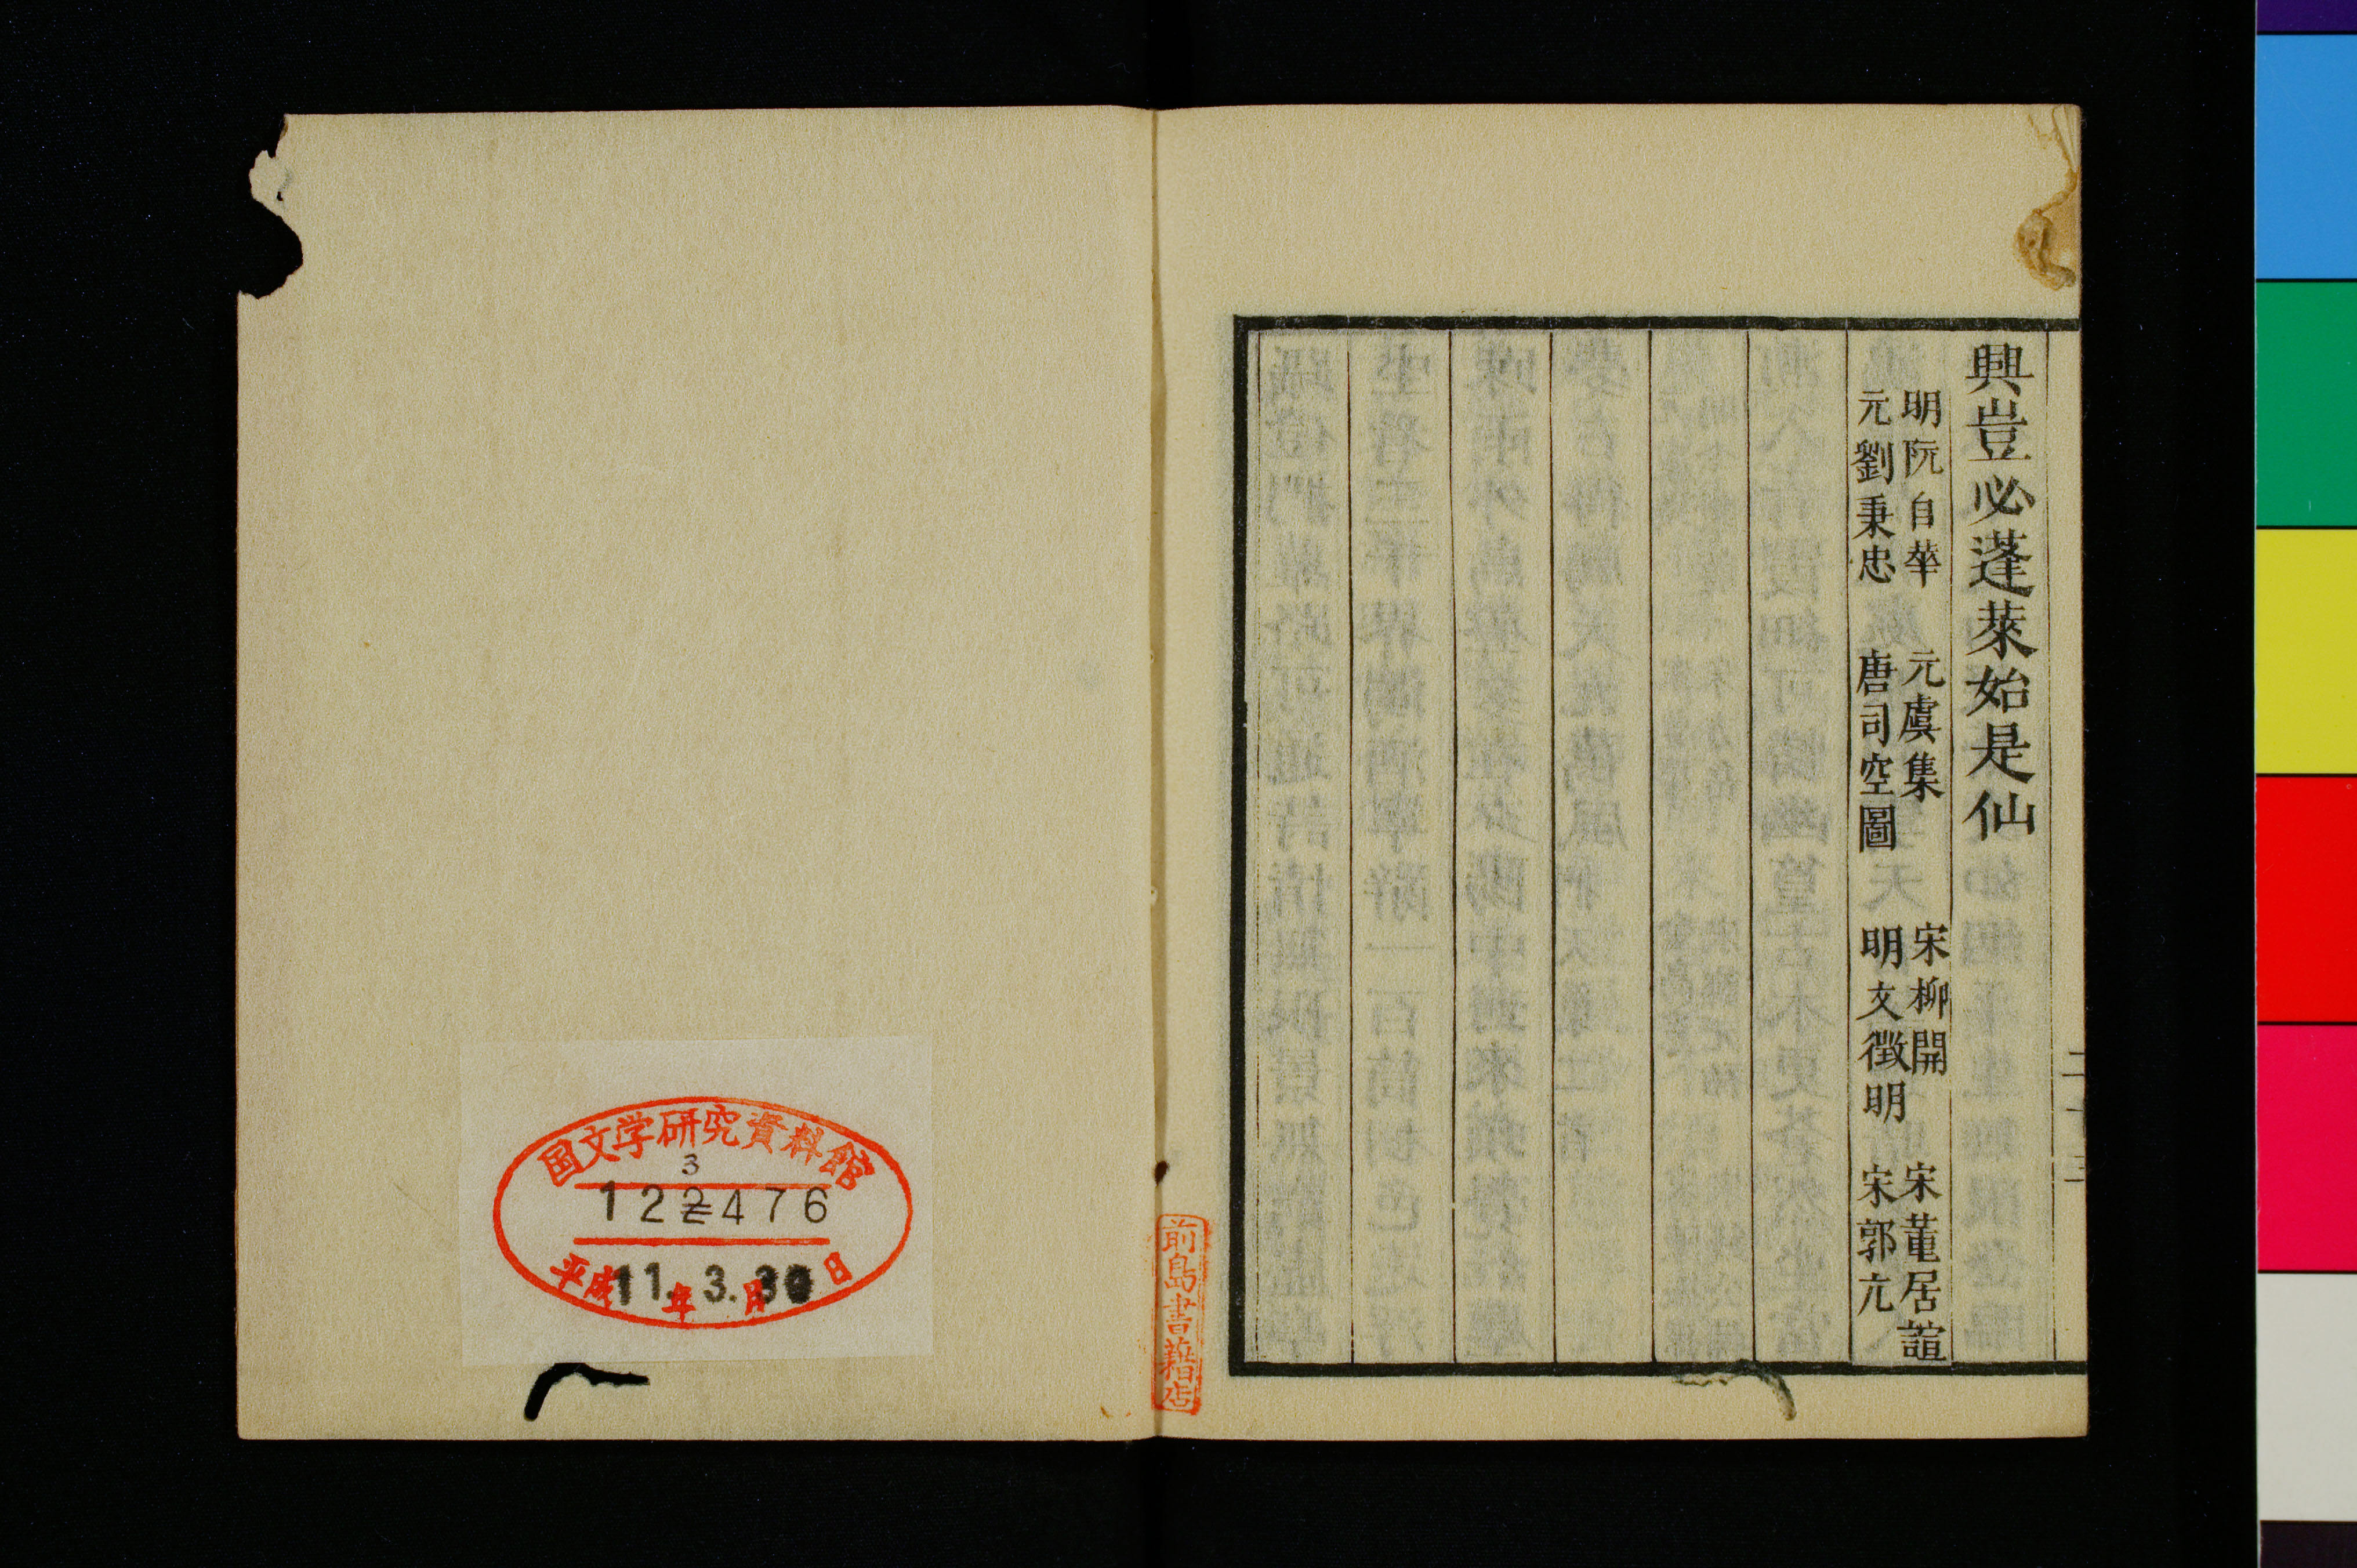 興豈必蓬萊始是仙
明阮自華　元虞集　宋柳開　宋董居誼
元劉秉忠　唐司空圖　明文徵明　宋郭亢
前島書藉店
国文学研究資料館
3
122476
平成11年3.30日